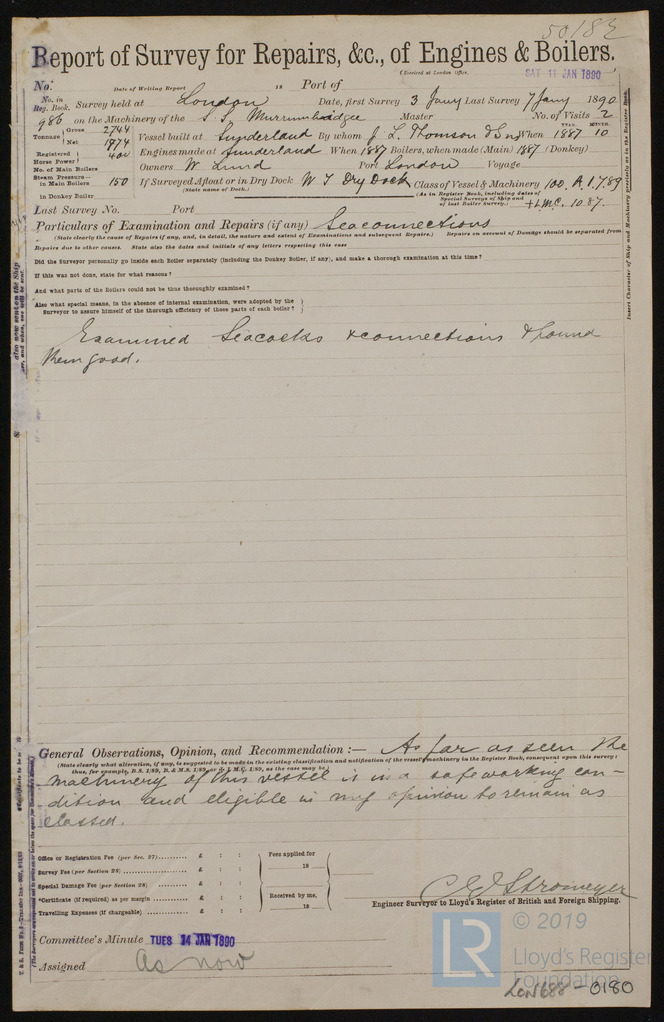 50182
Report of Survey for Repairs, &c., of Engines & Boilers.
(Received at London Office, SAT 11 JAN 1890
No. Date of Writing Report 18 Port of
No. in Reg. Book. Survey held at London Date, first Survey 3 Jany Last Survey 7 Jany 1890
986 on the Machinery of the S S Murrumbidgee Master No. of Visits 2
Tonnage Gross 2744 Net 1774 Vessel built at Sunderland By whom J L Thomson & Sns When 1887 YEAR. MONTH. 10
Registered Horse Power 400 Engines made at Sunderland When 1887 Boilers, when made (Main) 1887 (Donkey)
No. of Main Boilers Owners W Lund Port London Voyage
Steam Pressure— in Main Boilers 150 If Surveyed Afloat or in Dry Dock W I Dry Dock Class of Vessel & Machinery 100. A. 1. 7.89
(State name of Dock.) (As in Register Book, including dates of Special Surveys of Ship and of last Boiler Survey.) +L.M.C. 10.87.
in Donkey Boiler
Last Survey No. Port
Particulars of Examination and Repairs (if any) Seaconnections
(State clearly the cause of Repairs if any, and, in detail, the nature and extent of Examinations and subsequent Repairs.) Repairs on account of Damage should be separated from
Repairs due to other causes. State also the dates and initials of any letters respecting this case
Did the Surveyor personally go inside each Boiler separately (including the Donkey Boiler, if any), and make a thorough examination at this time?
If this was not done, state for what reasons?
And what parts of the Boilers could not be thus thoroughly examined?
Also what special means, in the absence of internal examination, were adopted by the
Surveyor to assure himself of the thorough efficiency of those parts of each boiler?
Examined Seacocks & connections & found
them good.
General Observations, Opinion, and Recommendation :— As far as seen the
(State clearly what alteration, if any, is suggested to be made in the existing classification and notification of the vessel's machinery in the Register Book, consequent upon this survey;
thus, for example, B.S. 1/89, B. & M.S. 1/89, or + L.M.C. 1/89, as the case may be.)
machinery of this vessel is in a safe working con-
dition and eligible in my opinion to remain as
classed.
Office or Registration Fee (per Sec. 27) £ : : Fees applied for
Survey Fee (per Section 28) £ : : 18
Special Damage Fee (per Section 28) £ : :
*Certificate (if required) as per margin £ : : Received by me,
Travelling Expenses (if chargeable) £ : : 18
C E Stromeyer
Engineer Surveyor to Lloyd's Register of British and Foreign Shipping.
Committee's Minute TUES 14 JAN 1890
Assigned as now
LR
© 2019
Lloyd's Register
Foundation
LON688-0180
Insert Character of Ship and Machinery precisely as in the Register Book.